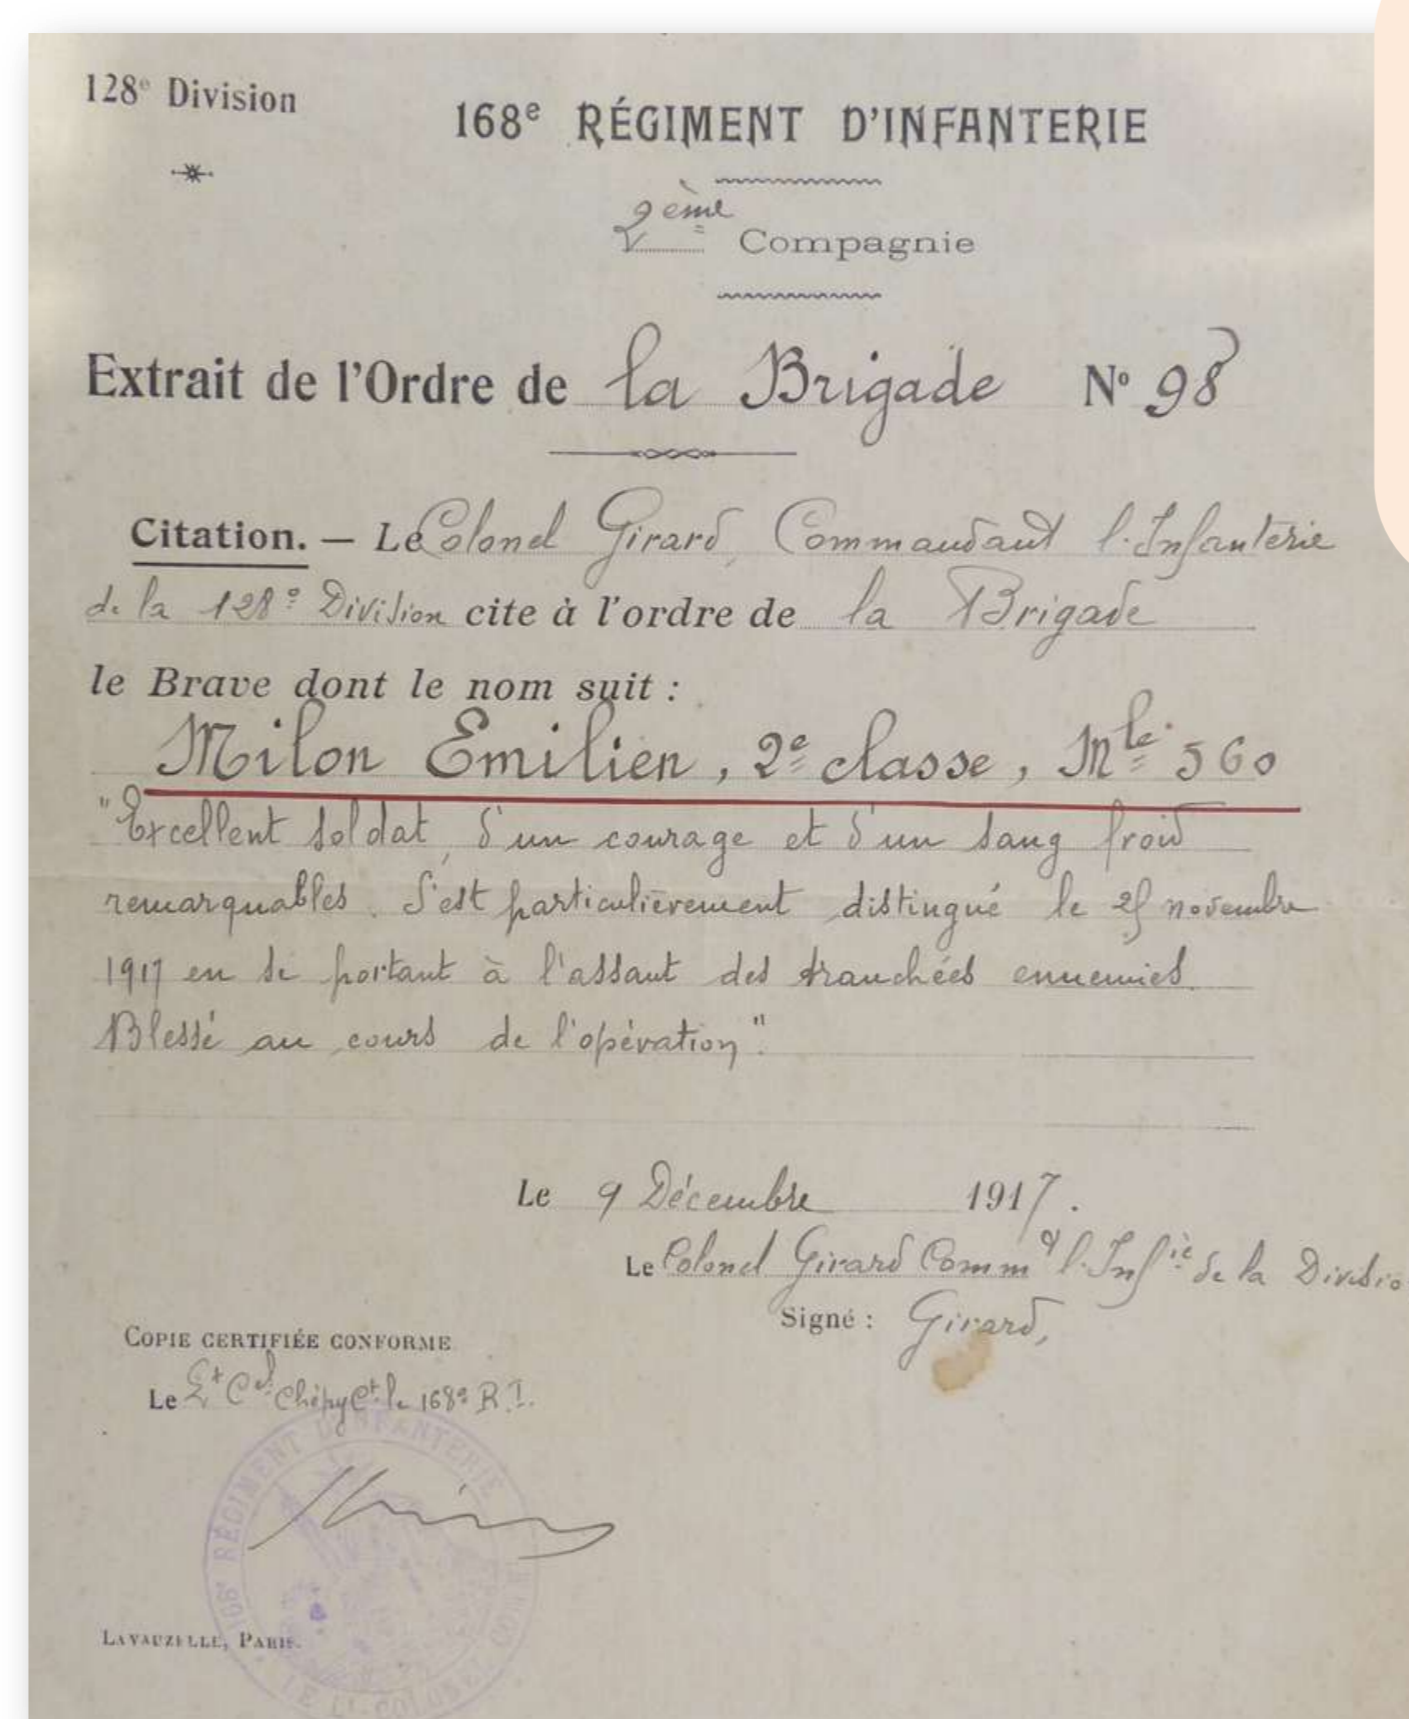 128e Division
168e RÉGIMENT D'INFANTERIE
2ème Compagnie
Extrait de l'Ordre de la Brigade No 98
Citation. — Le Colonel Girard, Commandant l'Infanterie
de la 128e Division cite à l'ordre de la Brigade
le Brave dont le nom suit :
Milon Emilien, 2e classe, Mle 560
"Excellent soldat, d'un courage et d'un sang froid
remarquables. S'est particulièrement distingué le 25 novembre
1917 en se portant à l'assaut des tranchées ennemies.
Blessé au cours de l'opération".
Le 9 Décembre 1917.
Le Colonel Girard Commd l'Infie de la Divisio
Signé : Girard,
COPIE CERTIFIÉE CONFORME
Le Lt Cel Chépy Ct le 168e R.I.
168e RÉGIMENT D'INFANTERIE
LE Lt-COLONEL
LAVAUZELLE, PARIS.